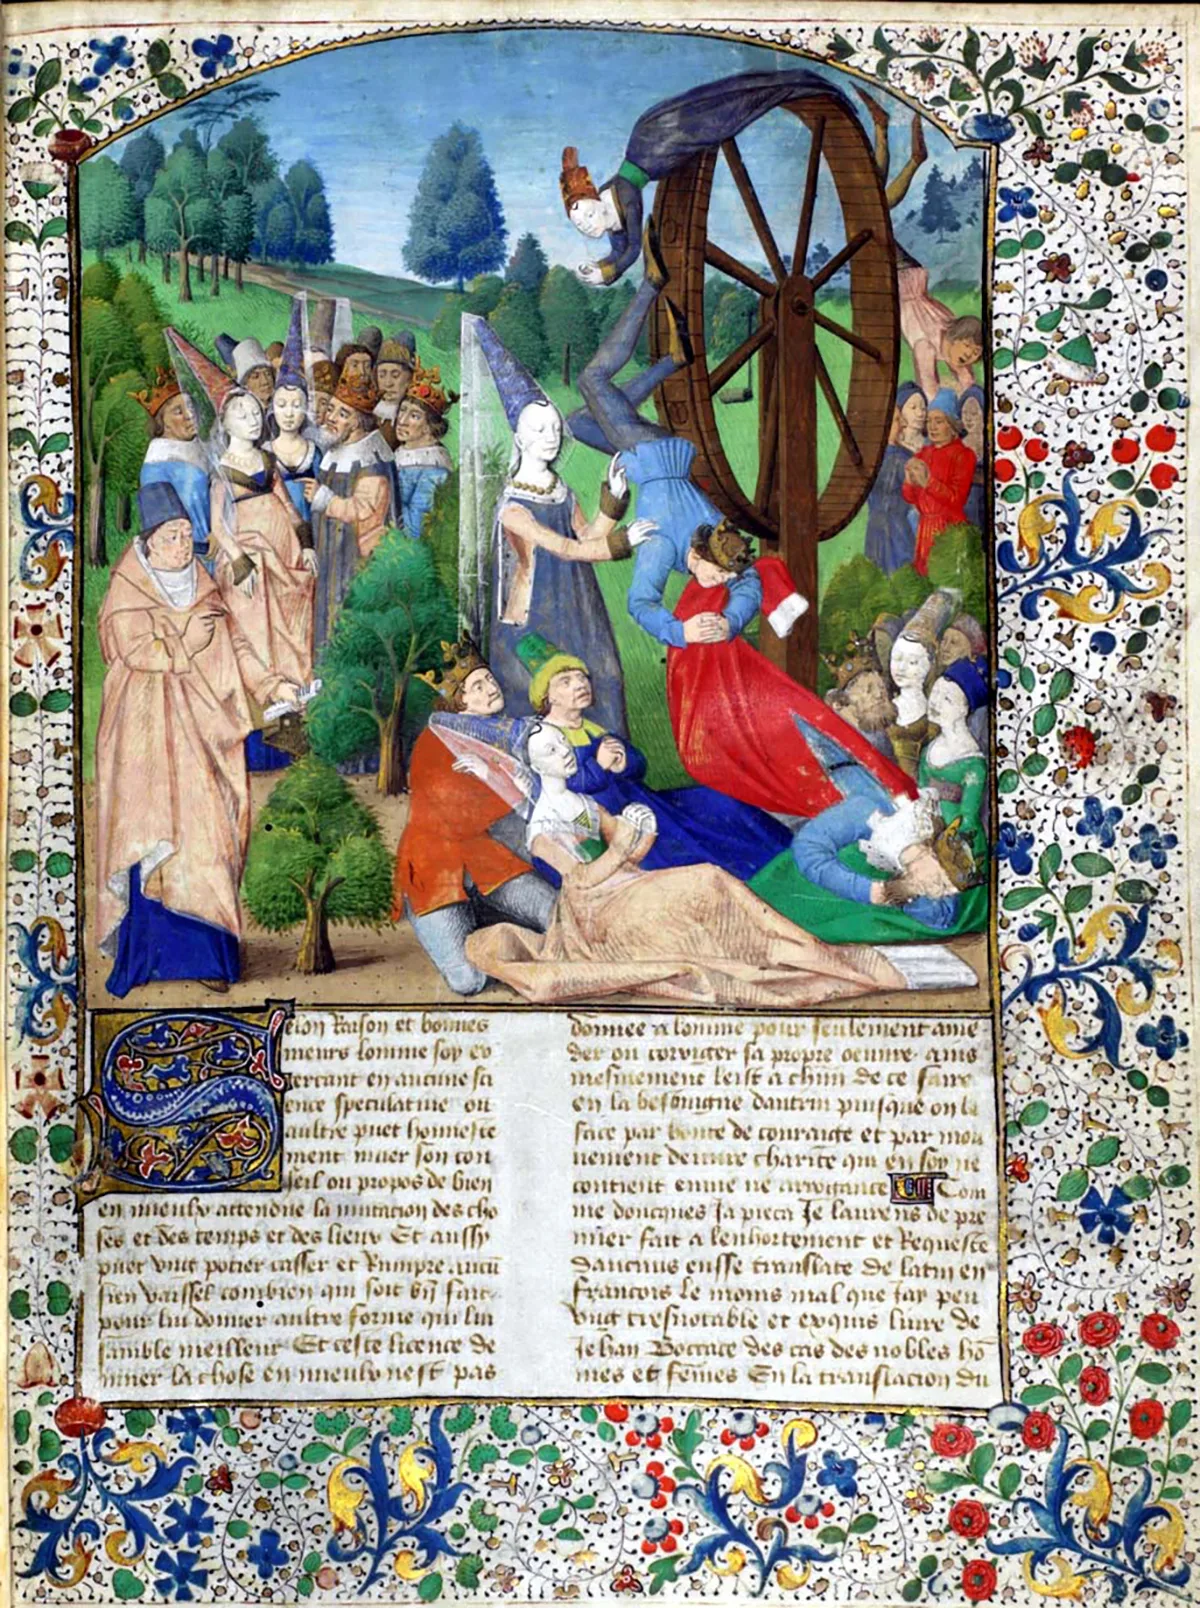 Selon Raison et bonnes
meurs lomme soy ex
ercant en aucune sci
ence speculative ou
aultre puet honneste
ment muer son con
seil ou propos de bien
en mieulx attendue la mutacion des cho
ses et des temps et des lieux Et aussy
puet ung potier casser et Rumpre aucu
sien vaissel combien qui soit bn fait
pour lui donner aultre forme qui lui
samble meilleur Et ceste licence de
muer la chose en mieulx nest pas
donnee a lomme pour seulement ame
der ou corriger sa propre oeuvre ains
mesmement leist a chun de ce faire
en la besoingne dautrui puisque on le
face par bonte de couraige et par mou
uement de vraie charite qui en soy ne
contient envie ne arrogance Com
me doncques Ja pieca Je laurens de pre
mier fait a lenhortement et Requeste
daucuns eusse translate de latin en
francois le moins mal que Jay peu
Ung tresnotable et exquis livre de
Jehan Boccace des cas des nobles ho
mes et femes En la translacion du